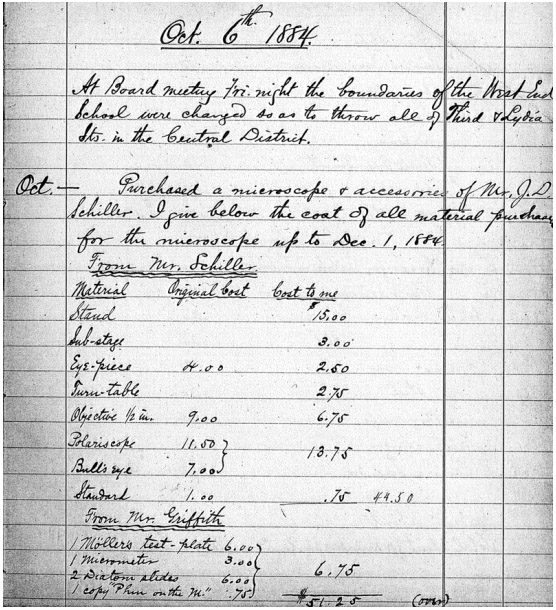 Oct. 6th 1884.
At Board meeting Fri. night the boundaries of the West End
School were changed so as to throw all of Third & Lydia
Sts. in the Central District.
Oct. — Purchased a microscope & accessories of Mr. J. D.
Schiller. I give below the cost of all material purchase
for the microscope up to Dec. 1, 1884
From Mr. Schiller
Material Original Cost Cost to me
Stand $15.00
Sub-stage 3.00
Eye-piece 4.00 2.50
Turn-table 2.75
Objective 1/2 in. 9.00 6.75
Polariscope 11.50
13.75
Bull's eye 7.00
Standard 1.00 .75 44.50
From Mr. Griffith
1 Möller's test-plate 6.00
1 Micrometer 3.00
6.75
2 Diatom slides 6.00
1 copy "Phin on the M." .75
$51.25 (over)